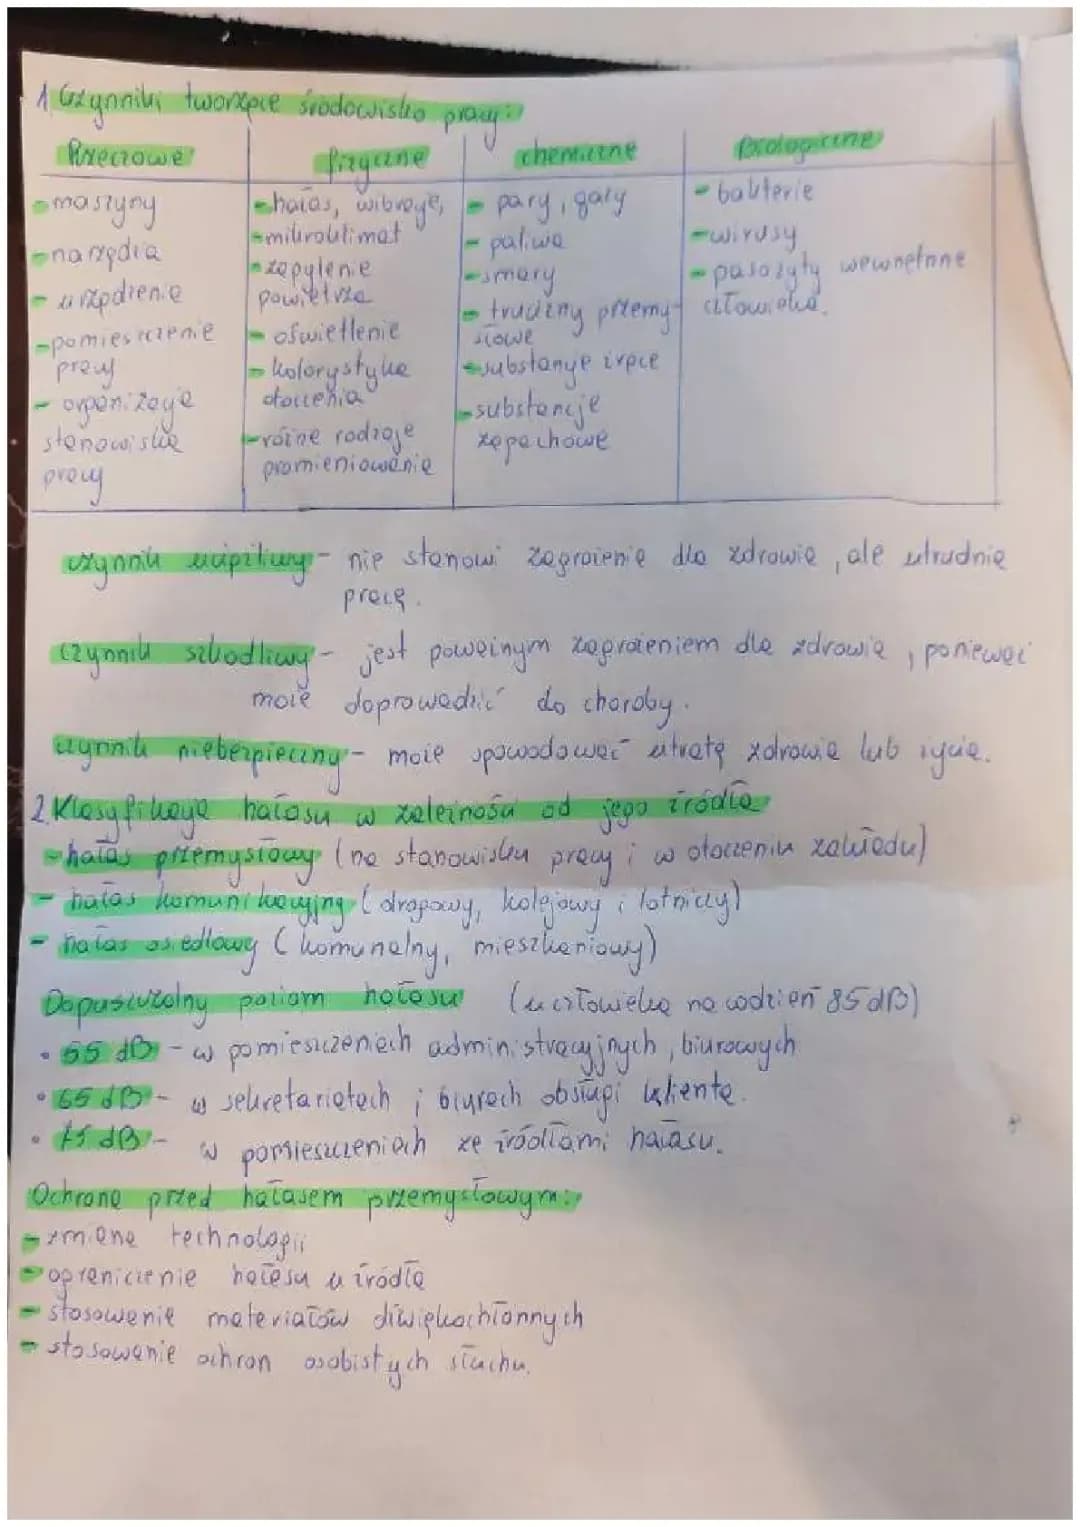 1. Czynniki tworzące środowisko pracy:
Rzeczowe fizyczne chemiczne Biologiczne
- maszyny
- narzędzia
- urządzenia
- pomieszczenie
pracy
- organizacja
stanowiska
pracy
- hałas, wibracje,
- mikroklimat
- zapylenie
powietrza
- oświetlenie
- kolorystyka
otoczenia
- różne rodzaje
promieniowania
- pary, gazy
- paliwa
- smary
- trucizny przemy-
słowe
- substancje żrące
- substancje
zapachowe
- bakterie
- wirusy
- pasożyty wewnętrzne
człowieka.
czynnik uciążliwy - nie stanowi zagrożenia dla zdrowia, ale utrudnia
pracę.
czynnik szkodliwy - jest poważnym zagrożeniem dla zdrowia, ponieważ
może doprowadzić do choroby.
czynnik niebezpieczny - może spowodować utratę zdrowia lub życia.
2. Klasyfikacja hałasu w zależności od jego źródła
- hałas przemysłowy (na stanowisku pracy i w otoczeniu zakładu)
- hałas komunikacyjny (drogowy, kolejowy i lotniczy)
- hałas osiedlowy (komunalny, mieszkaniowy)
Dopuszczalny poziom hałasu (u człowieka na codzień 85 dB)
• 55 dB - w pomieszczeniach administracyjnych, biurowych
• 65 dB - w sekretariatach i biurach obsługi klienta.
• 75 dB - w pomieszczeniach ze źródłami hałasu.
Ochrona przed hałasem przemysłowym:
- zmiana technologii
- ograniczenie hałasu u źródła
- stosowanie materiałów dźwiękochłonnych
- stosowanie ochron osobistych słuchu.